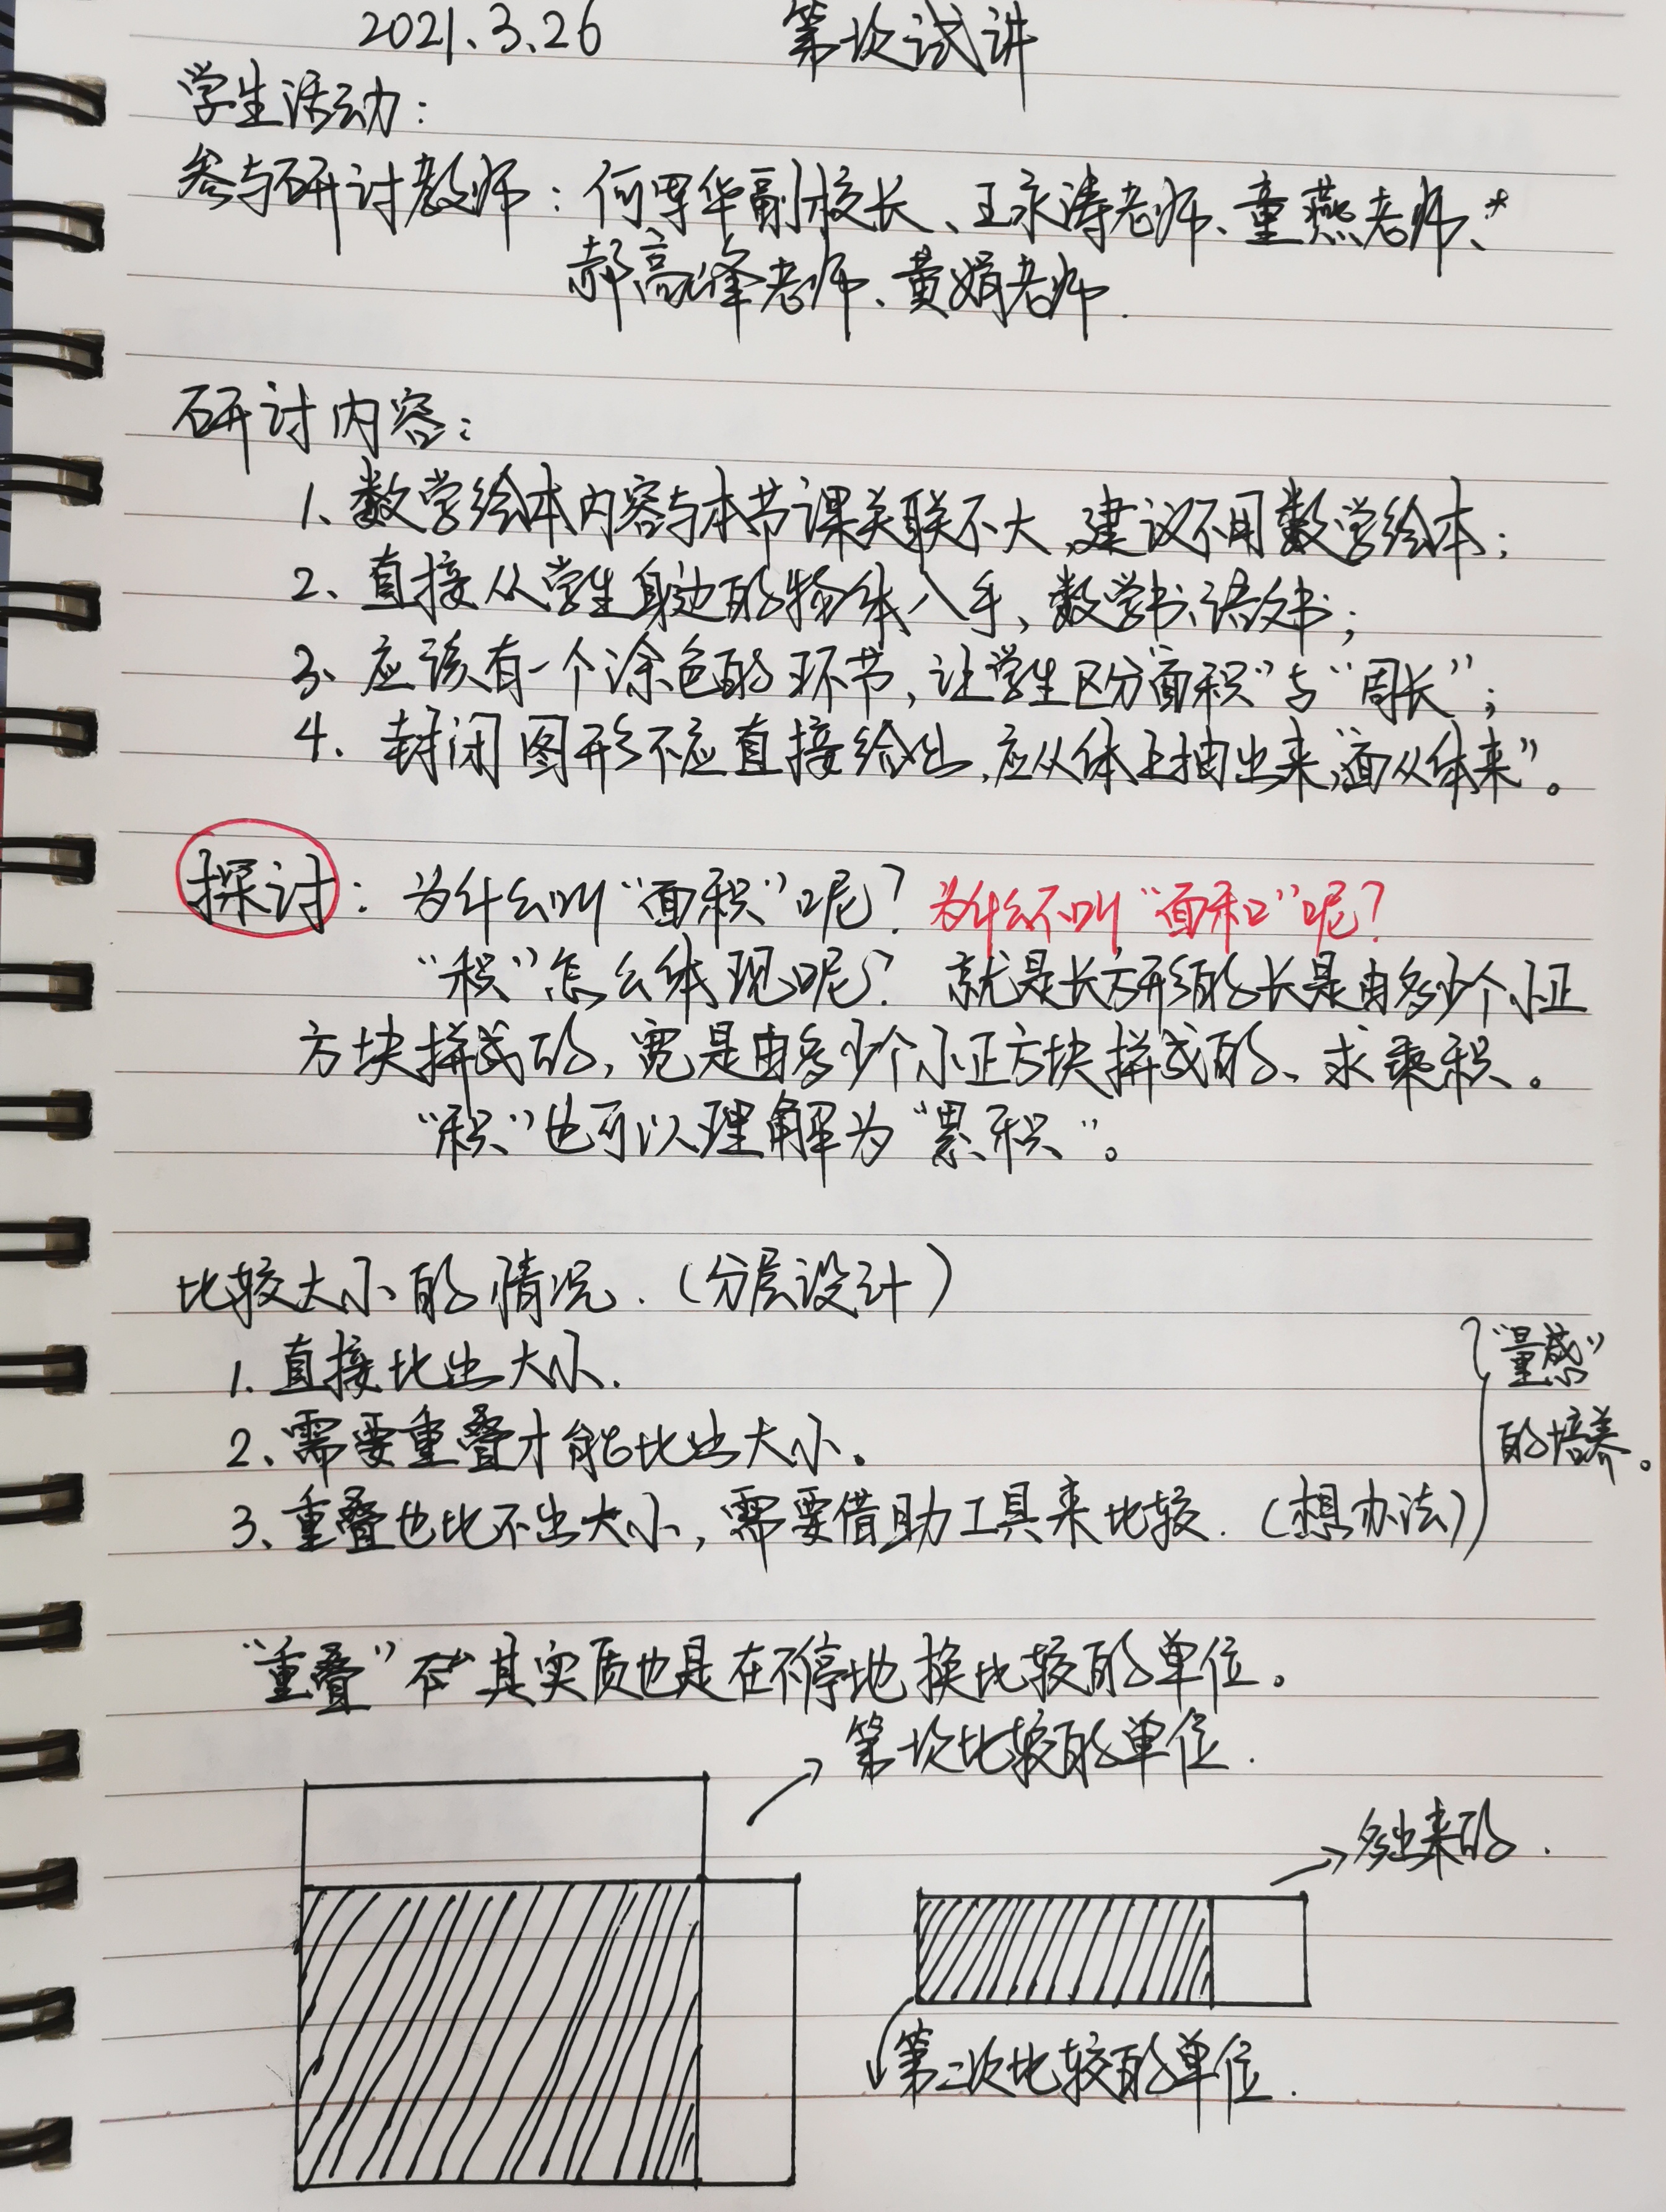 2021.3.26 第一次试讲
学生活动：
参与研讨教师：何军华副校长、王永涛老师、童燕老师、*
郝高峰老师、黄娟老师.
研讨内容：
1、数学绘本内容与本节课关联不大，建议不用数学绘本；
2、直接从学生身边的物体入手、数学书、语文书；
3、应该有一个涂色的环节，让学生区分“面积”与“周长”；
4、封闭图形不应直接给出，应从体上抽出来，“面从体来”。
探讨：为什么叫“面积”呢？为什么不叫“面和”呢？
“积”怎么体现呢？就是长方形的长是由多少个小正
方块拼成的，宽是由多少个小正方块拼成的、求乘积。
“积”也可以理解为“累积”。
比较大小的情况.（分层设计）
1.直接比出大小.
2、需要重叠才能比出大小。
3、重叠也比不出大小，需要借助工具来比较.（想办法）
“量感”
的培养。
“重叠” 其实质也是在不停地换比较的单位。
第一次比较的单位.
多出来的.
第二次比较的单位.